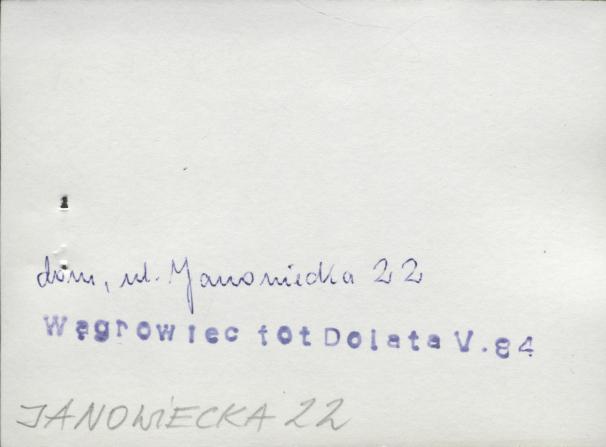 1
dom, ul. Janowiecka 22
Wągrowiec fot Dolata V.84
JANOWIECKA 22